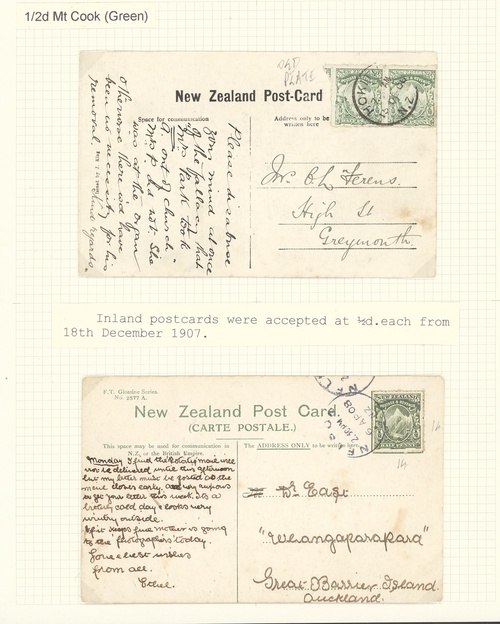 1/2d Mt Cook (Green)
OLD
PLATE
New Zealand Post-Card
Space for communication
Address only to be
written here
Please disabuse
your mind at once
of the fallacy that
Mrs Park took
A. out of church.
Mrs P. did not. She
was at the organ
otherwise there wd have
been no necessity for his
removal. Kind regards.
Mr. C L Ferens.
High St
Greymouth
N.Z
Inland postcards were accepted at ½d.each from
18th December 1907.
F.T. Glosine Series.
No. 2877 A.
New Zealand Post Card.
(CARTE POSTALE.)
This space may be used for communication in
N.Z. or the British Empire.
The ADDRESS ONLY to be written here.
Monday I find the Rotaty mail will
not be delivered until this afternoon
but my letter must be posted as the
mail closes early. Am very anxious
to get your letter this week. Its a
bitterly cold day & looks very
wintry outside.
If it keeps fine mother is going
to the 'photographers' today.
Love & best wishes
from all.
Ethel.
NEW ZEALAND
14
14
Dr East
"Whangaparapara"
Great Barrier Island.
Auckland.